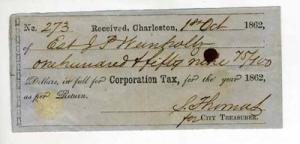 No. 273 Received, Charleston, 1st Oct 1862,
of Est J. P.
one hundred & fifty nine 75/100
Dollars, in full for Corporation Tax, for the year 1862,
as per Return.
S. Thomas
for CITY TREASURER.